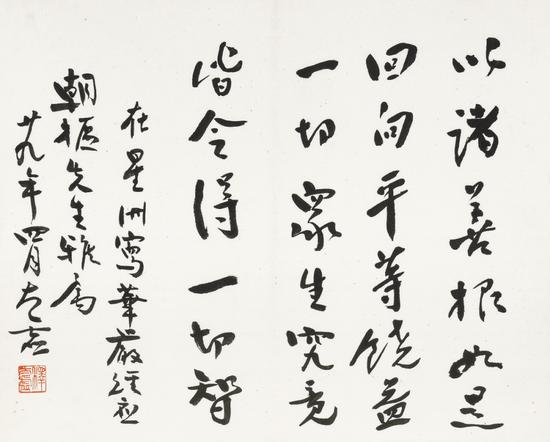 以諸善根如是
回向平等饒益
一切衆生究竟
皆令得一切智
在星洲寫華嚴經應
朝樞先生雅屬
廿九年四月太虛